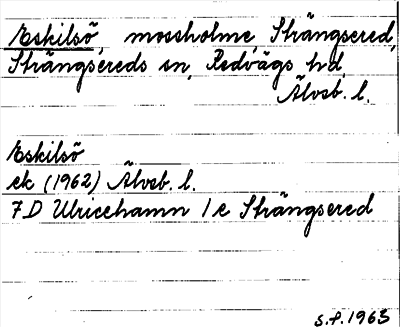 Eskilsö, mossholme, Strängsered,
Strängsereds sn, Redvägs hd,
Älvsb. l.
Eskilsö
ek (1962) Älvsb. l.
7D Ulricehamn 1e Strängsered
S.F. 1963